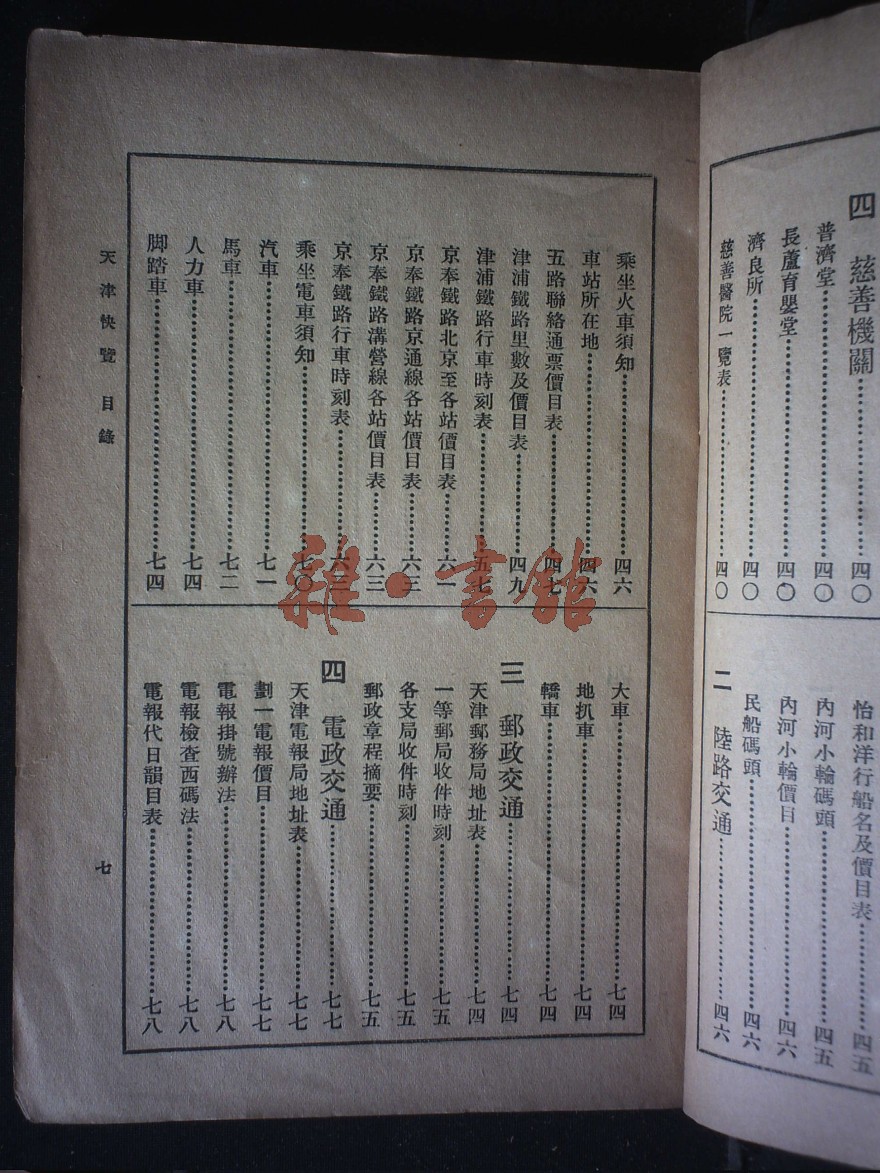 四 慈善機關……四〇
普濟堂……四〇
長蘆育嬰堂……四〇
濟良所……四〇
慈善醫院一覽表……四〇
怡和洋行船名及價目表……四五
內河小輪碼頭……四五
內河小輪價目……四六
民船碼頭……四六
二 陸路交通……四六
乘坐火車須知……四六
車站所在地……四六
五路聯絡通票價目表……四七
津浦鐵路里數及價目表……四九
津浦鐵路行車時刻表……五七
京奉鐵路北京至各站價目表……六一
京奉鐵路京通線各站價目表……六三
京奉鐵路溝營線各站價目表……六三
京奉鐵路行車時刻表……六三
乘坐電車須知……七〇
汽車……七一
馬車……七二
人力車……七四
脚踏車……七四
大車……七四
地扒車……七四
轎車……七四
三 郵政交通……七四
天津郵務局地址表……七四
一等郵局收件時刻……七五
各支局收件時刻……七五
郵政章程摘要……七五
四 電政交通……七七
天津電報局地址表……七七
劃一電報價目……七七
電報掛號辦法……七八
電報檢查西碼法……七八
電報代日韻目表……七八
天津快覽 目錄
七
雜·書館